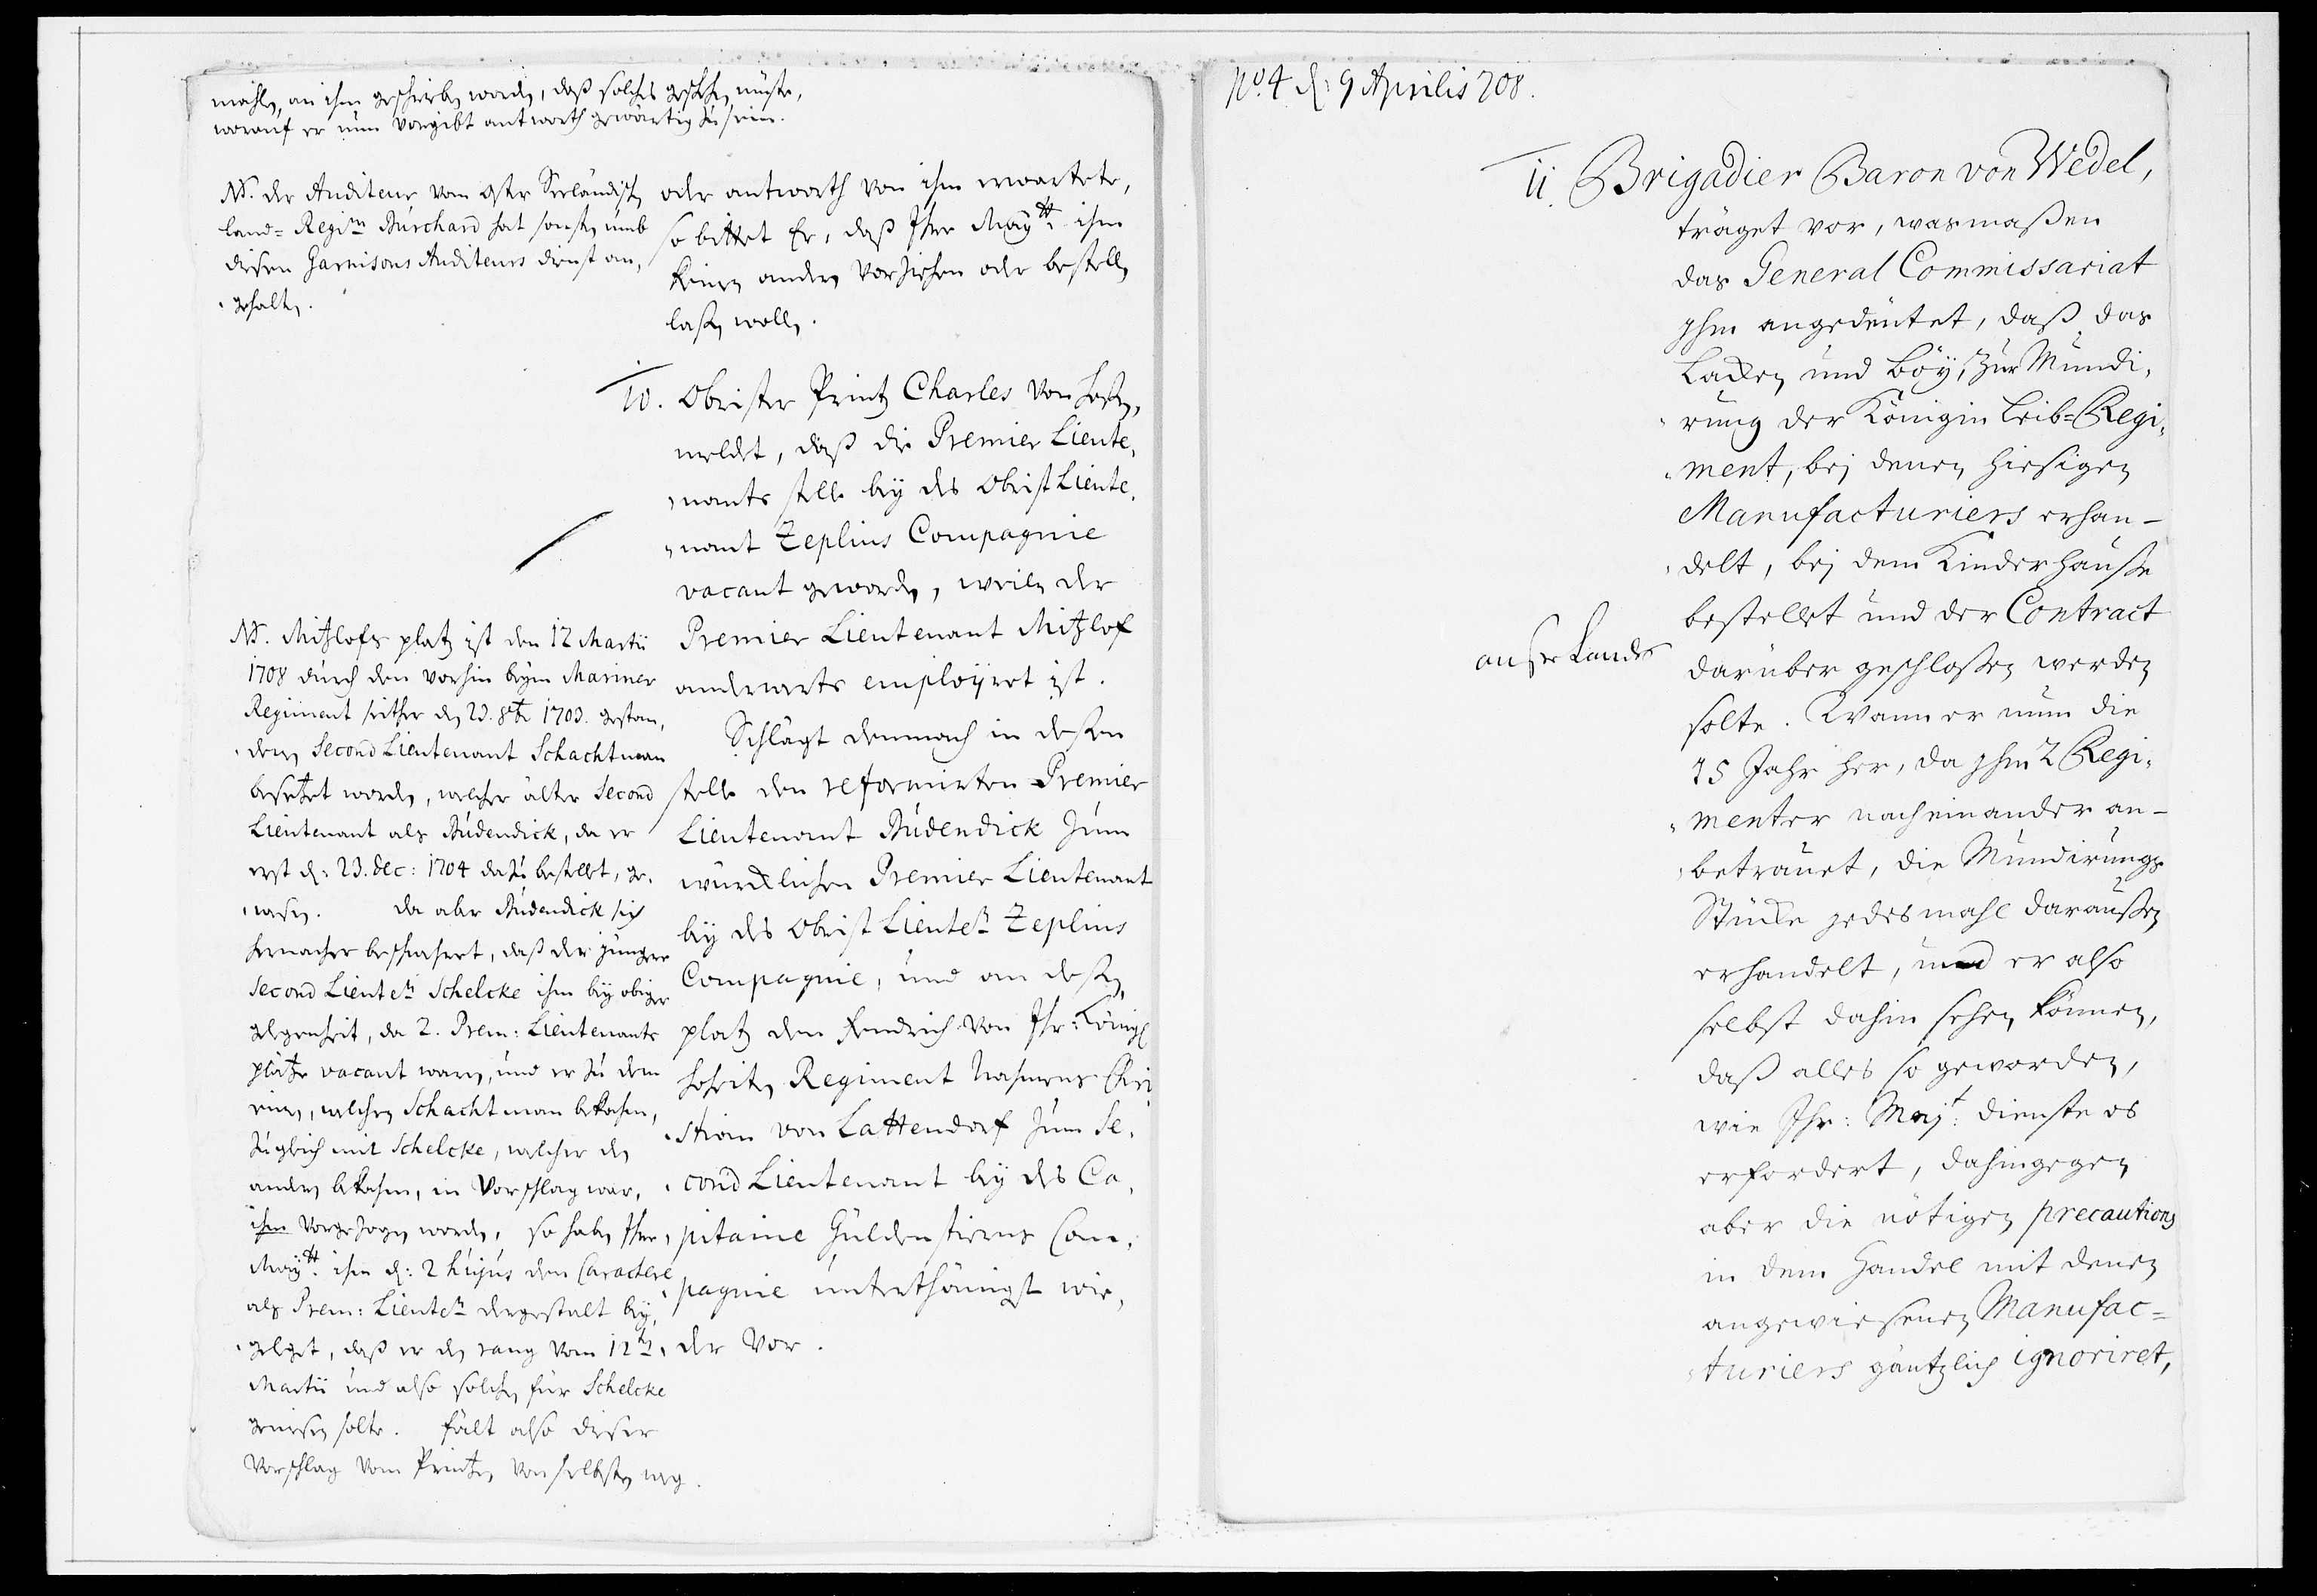 mahls, an ihm geschrieben worden, daß solches geschehen müste,
worauf er nun vorgibt antworth gewärtig zu sein.
NB. der Auditeur vom Oster Seeländischen
land= Regim Burchard hat sonsten umb
diesen Garnisons Auditeurs dienst an,
gehalten.
oder antworth von ihm erwartete,
so bittet Er, daß Ihre Maytt ihm
keinen andern vorziehen oder bestellen
laßen wollen.
10. Obrister Printz Charles von Heßen,
meldet, daß die Premier Lieute,
nants stelle bey des Obrist Lieute,
nant Zeplins Compagnie
vacant geworden, weilen der
Premier Lieutenant Mitzlof
anderwerts employiret ist.
Schlägt demnach in deßen
stelle den reformirten Premier
Lieutenant Büdendick zum
würcklichen Premier Lieutenant
bey des Obrist Lieuten Zeplins
Compagnie, und an deßen
platz den Fendrich von Ihr: Königl
Hoheiten Regiment Nahmens Chri,
stian von Lattendorf zum Se,
cond Lieutenant bey des Ca,
pitaine Güldenstierns Com,
pagnie unterthänigst wie,
der vor.
NB. Mitzlofs platz ist den 12 Martii
1708 durch den vorhin beym Mariner
Regiment seither den 23. 8br 1703. gestan,
denen Second Lieutenant Schachtman
besetzet worden, welcher älter Second
Lieutenant als Büdendick, da er
erst d: 23. dec: 1704 dazu bestellet, ge,
wesen. da aber Büdendick sich
hernacher beschwehret, daß der jüngere
Second Lieuten Schelcke ihm bey obiger
gelegenheit, da 2. Prem: Lieutenants
plätze vacant waren, und er zu dem
einen, welchen Schachtman bekohmen,
zugleich mit Schelcke, welcher den
andern bekohmen, in Vorschlag war,
ihm vorgezogen worden, so haben Ihre
Maytt ihm d: 2 hujus den Caractere
als Prem: Lieuten dergestalt bey,
geleget, daß er den rang vom 12ten
Martii und also solchen für Schelcke
genießen solte. fält also dieser
Vorschlag vom Printzen von selbsten weg.
No. 4 d: 9 Aprilis 708.
11. Brigadier Baron von Wedel,
träget vor, wasmaßen
das General Commissariat
Ihm angedeutet, daß das
Lacken und Böy, zur Mundi,
rung der Königin Leib=Regi,
ment, bej denen hiesigen
Manufacturiers erhan-
delt, bej dem Kinderhause
bestellet und der Contract
darüber geschloßen werden
solte. Wann er nun die
15 Jahr her, da Ihm 2 Regi,
menter nacheinander an-
betrauet, die Mundirungs
Stücke jedesmahl daraußen
außer Landes
erhandelt, und er also
selbst dahin sehen können,
daß alles so geworden,
wie Ihr: Majt: dienste es
erfordert, dahingegen
aber die nötigen precautions
in dem Handel mit denen
angewiesenen Manufac=
turiers gäntzlich ignoriret,